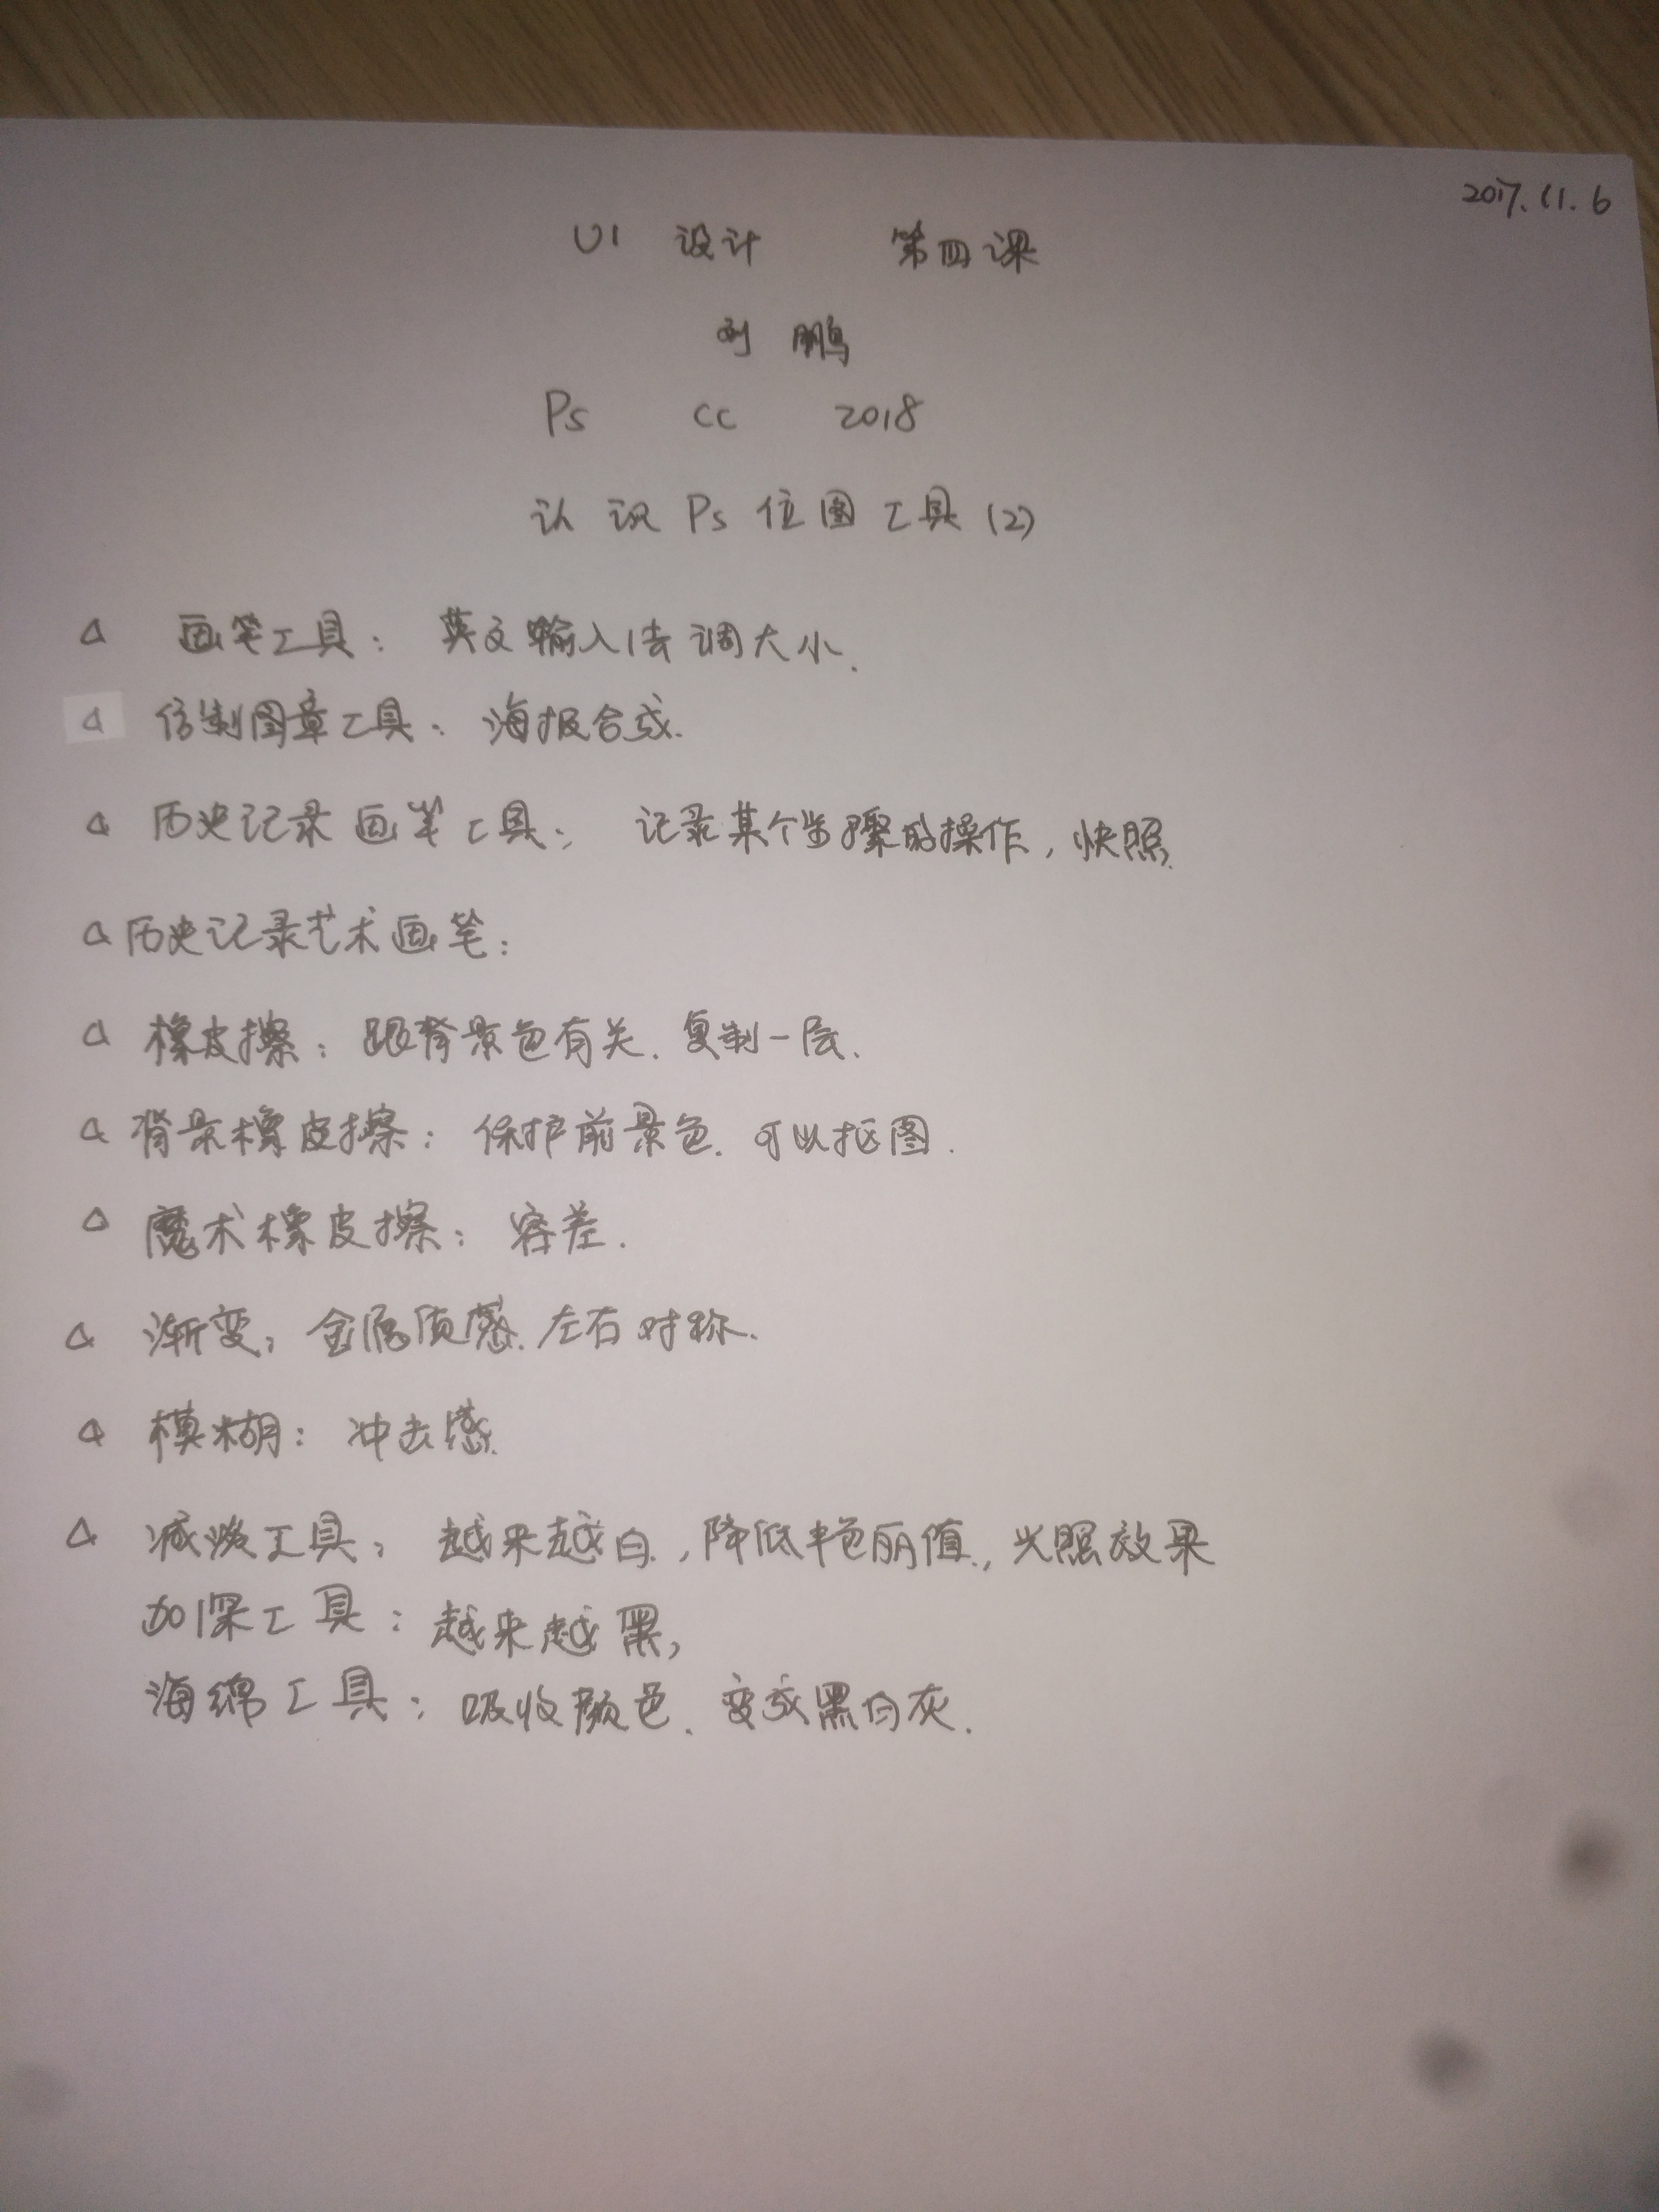 2017.11.6
UI 设计 第四课
刘鹏
Ps CC 2018
认识Ps位图工具(2)
△ 画笔工具：英文输入法调大小.
△ 仿制图章工具：海报合成.
△ 历史记录画笔工具：记录某个步骤的操作，快照.
△ 历史记录艺术画笔：
△ 橡皮擦：跟背景色有关.复制一层.
△ 背景橡皮擦：保护前景色.可以抠图.
△ 魔术橡皮擦：容差.
△ 渐变：金属质感.左右对称.
△ 模糊：冲击感.
△ 减淡工具：越来越白.，降低 色 值.，光照效果
加深工具：越来越黑，
海绵工具：吸收颜色.变成黑白灰.